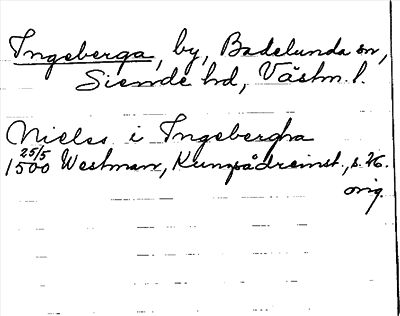 Ingeberga, by, Badelunda sn,
Siende hd, Västm. l.
Nieles i Ingebergha
25/5
1500 Westman, Kungsådreinst., s. 26.
orig.